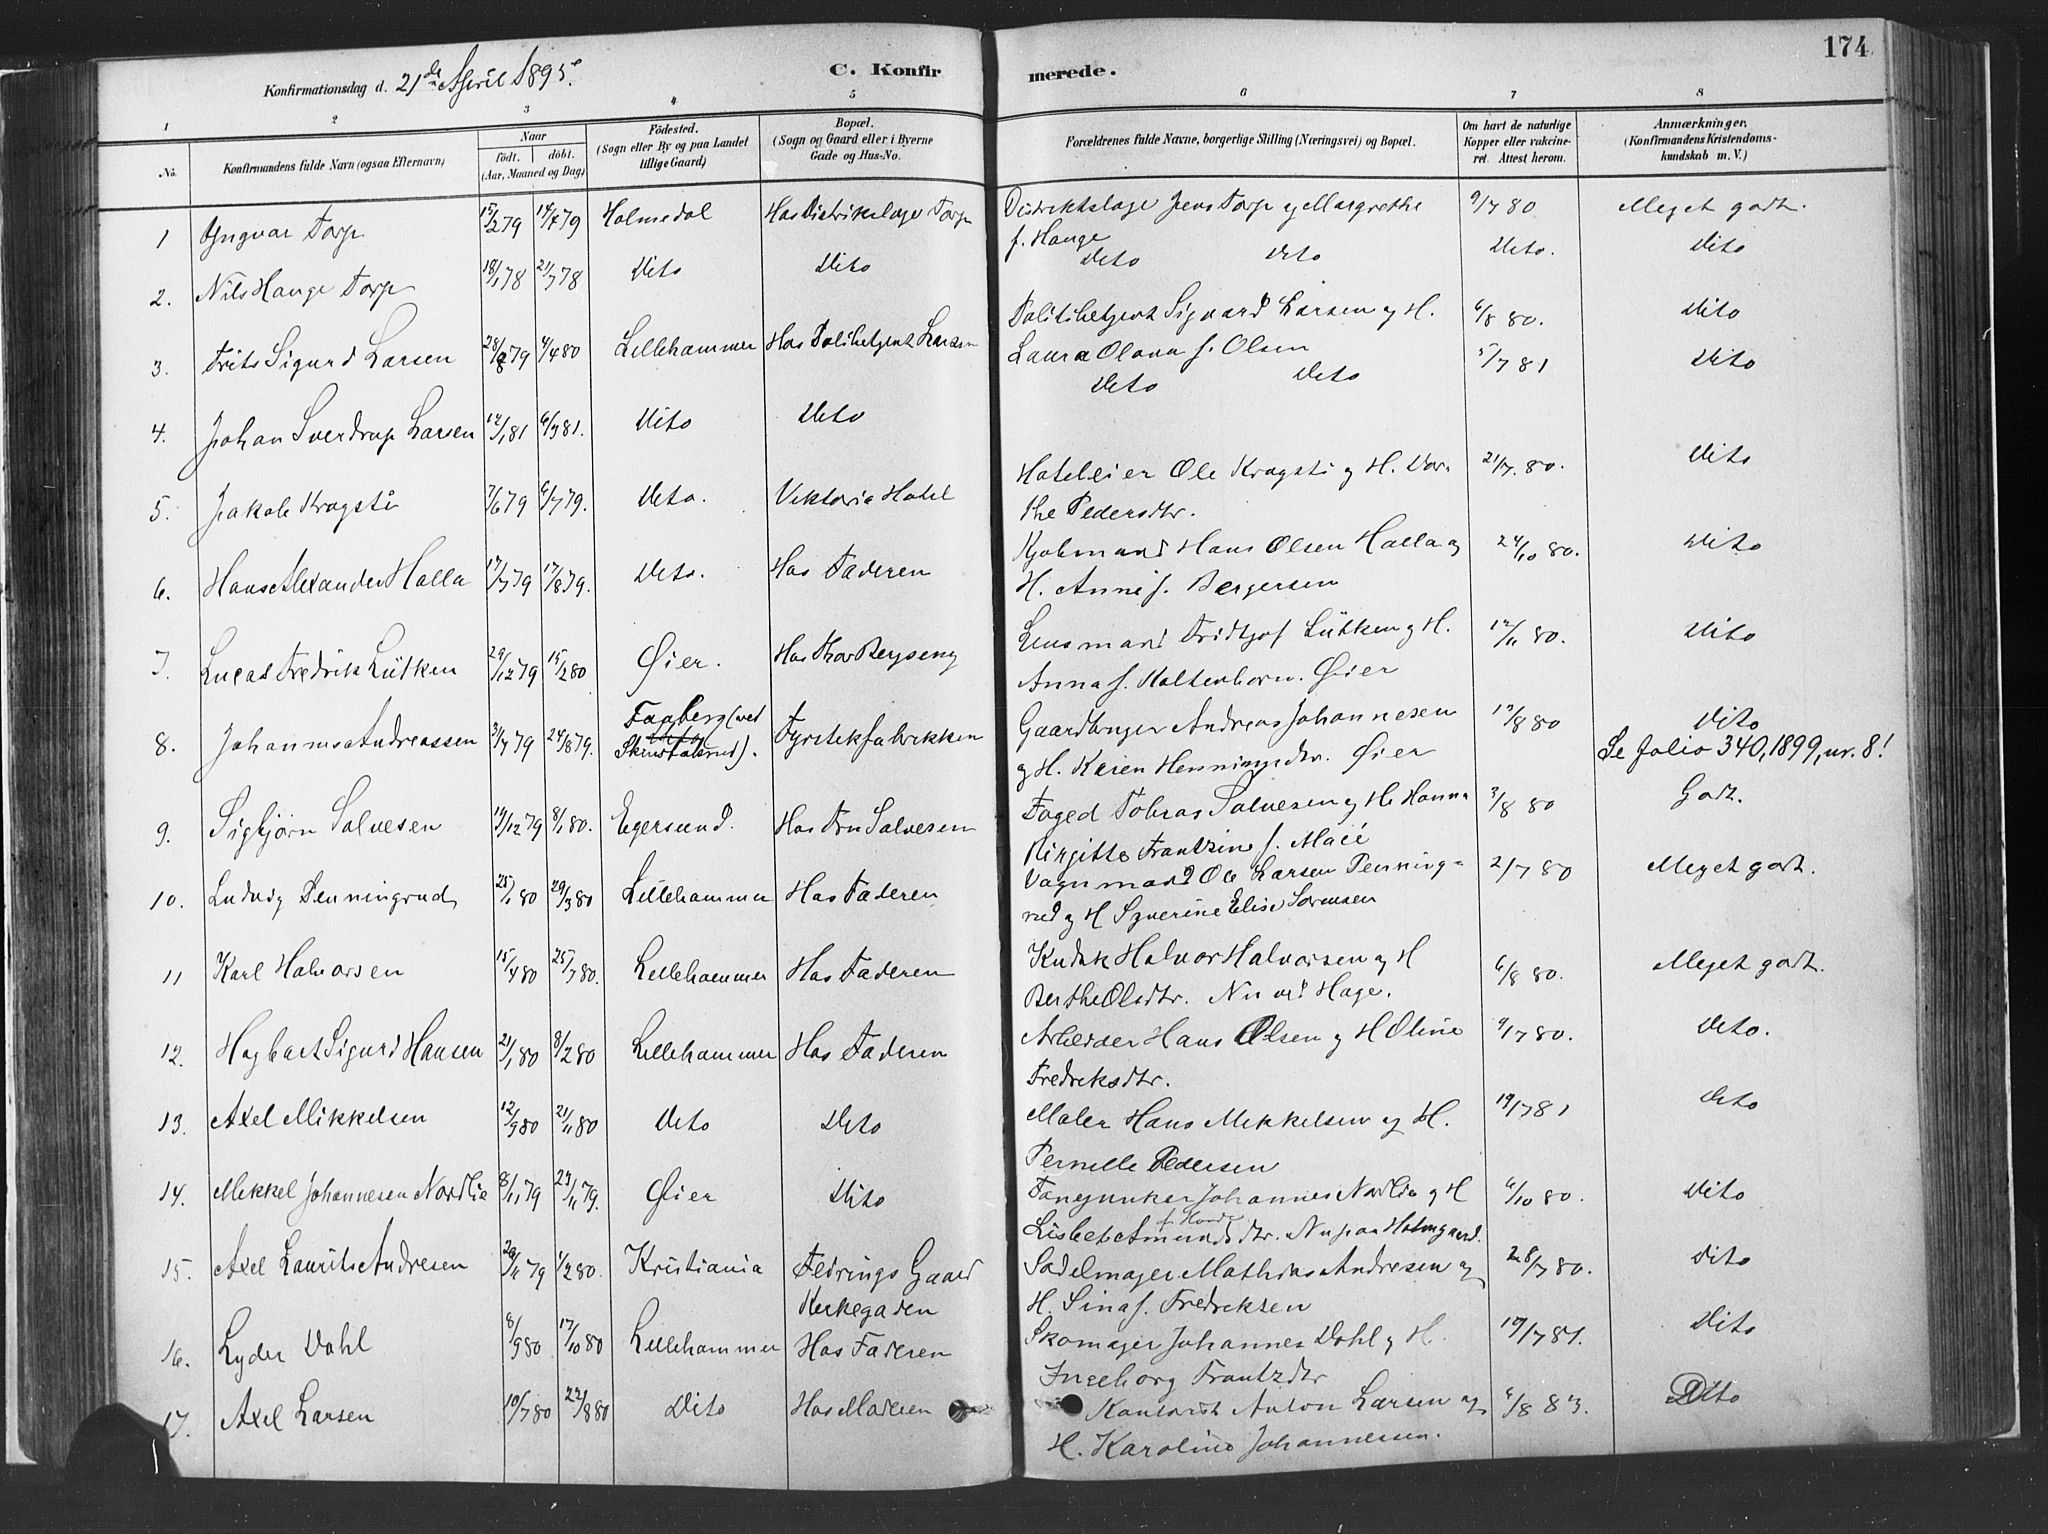 174
Konfirmationsdag d. 21de April 1895.
C. Konfirmerede.
1 2 3 4 5 6 7 8
No.
Konfirmandens fulde Navn (ogsaa Efternavn)
Naar
födt. döbt.
(Aar, Maaned og Dag)
Födested.
(Sogn eller By og paa Landet
tillige Gaard)
Bopæl.
(Sogn og Gaard eller i Byerne
Gade og Hus-No.
Forældrenes fulde Navne, borgerlige Stilling (Næringsvei) og Bopæl.
Om havt de naturlige
Kopper eller vakcine-
ret. Attest herom.
Anmærkninger.
(Konfirmandens Kristendoms-
kundskab m. V.)
1 Yngvar Torp 15/2 79 14/4 79 Holmedal Hos Distriktslæge Torp Distriktslæge Jens Torp og Margrethe 9/7 80 Meget godt.
f. Hauge
2. Nils Hauge Torp 18/1 78 21/7 78 Dito Dito Dito Dito Dito. Dito
3. Frits Sigurd Larsen 28/8 79 4/4 80 Lillehammer Hos Politibetjent Larsen Politibetjent Sigvard Larsen og H. 6/8 80. Dito
Laura Olava f. Olsen
4. Johan Sverdrup Larsen 12/1 81 6/3 81. Dito Dito Dito Dito 5/7 81 Dito
5. Jakob Kragsti 7/6 79 6/7 79. Dito. Viktoria Hotel Hoteleier Ole Kragsti og H. Dor- 21/7. 80. Dito
the Pedersdtr.
6. Hans Alexander Halla 17/7 79 17/8 79. Dito. Hos Faderen Kjøbmand Hans Olsen Halla og 24/10 80. Dito
H. Anne f. Bergersen
7. Lucas Fredrik Lütken 29/12 79 15/2 80 Øier. Hos Thor Bergseng Lensmand Fridtjof Lütken og H. 12/11 80. Dito
Anna f. Kaltenborn. Øier
8. Johannes Andreassen 31/7 79 24/8 79. Faaberg (ved
Skrustalund). Fyrstikfabrikken Gaardbruger Andreas Johannesen 13/8 80 Dito
og H. Karen Henningsdtr. Øier Se folio 340, 1899, nr. 8!
9. Sigbjørn Salvesen 19/12 79 8/1 80. Egersund. Hos Fru Salvesen Foged Tobias Salvesen og H. Hanna 3/8 80 Godt.
Birgitte Frantzine f. Macé
10. Ludvig Penningrud 25/1 80 29/3 80 Lillehammer Hos Faderen Vognmand Ole Larsen Penning- 2/7 80 Meget godt.
rud og H Syverine Elise Sørensen
11 Karl Halvorsen 15/4 80 25/7 80. Lillehammer Hos Faderen Kudsk Halvor Halvorsen og H 6/8 80. Meget godt.
Berthe Olsdtr. Nu ved Hage.
12. Hagbart Sigurd Hansen 21/1 80 8/2 80 Lillehammer Hos Faderen Arbeider Hans Olsen og H Oline 9/7 80. Dito.
Fredriksdtr.
13. Axel Mikkelsen 12/9 80 21/11 80 Dito Dito Maler Hans Mikkelsen og H. 19/7 81 Dito
Pernille Pedersen
14. Mikkel Johannesen Nordlie 8/11 79 23/11 79. Øier Dito Johannes Nordlie og H 6/10 80. Dito
Lisbet Amundsdtr. Nu paa Holmgaard.
15. Axel Laurits Andresen 29/11 79 1/2 80. Kristiania Gaard Sadelmager Mathias Andresen og 28/7 80. Dito
Kirkegaden H. Sina f. Fredriksen
16. Lyder Dahl 8/9 80 17/10 80 Lillehammer Hos Faderen Skomager Johannes Dahl og H. 19/7 81. Dito
Ingeborg Frantzdtr
17. Axel Larsen 10/7 80 22/8 80 Dito Hos Moderen Kontorist Anton Larsen og 6/8 83. Dito
H. Karoline Johannessen.